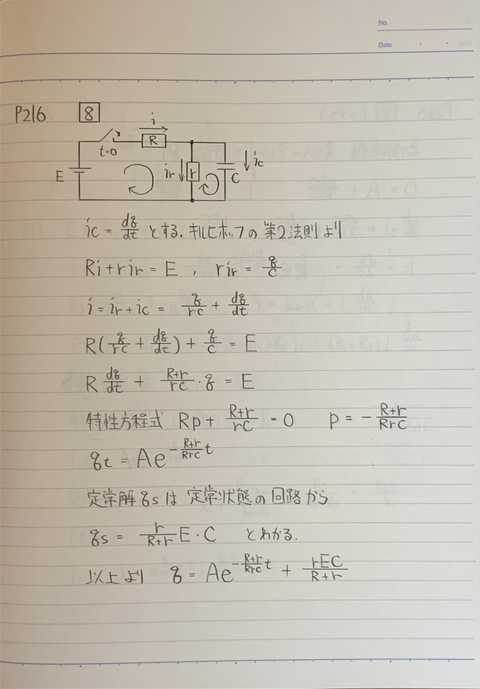 No.
Date
P216 8
i
R
t=0
E
ir
r
ic
C
ic = dq/dt とする. キルヒホッフの第2法則より
Ri + rir = E , rir = q/C
i = ir + ic = q/rC + dq/dt
R(q/rC + dq/dt) + q/C = E
R dq/dt + R+r/rC · q = E
特性方程式 Rp + R+r/rC = 0 p = - R+r/RrC
qt = Ae^{-R+r/RrC t}
定常解 qs は 定常状態の回路から
qs = r/R+r E · C とわかる.
以上より q = Ae^{-R+r/RrC t} + rEC/R+r